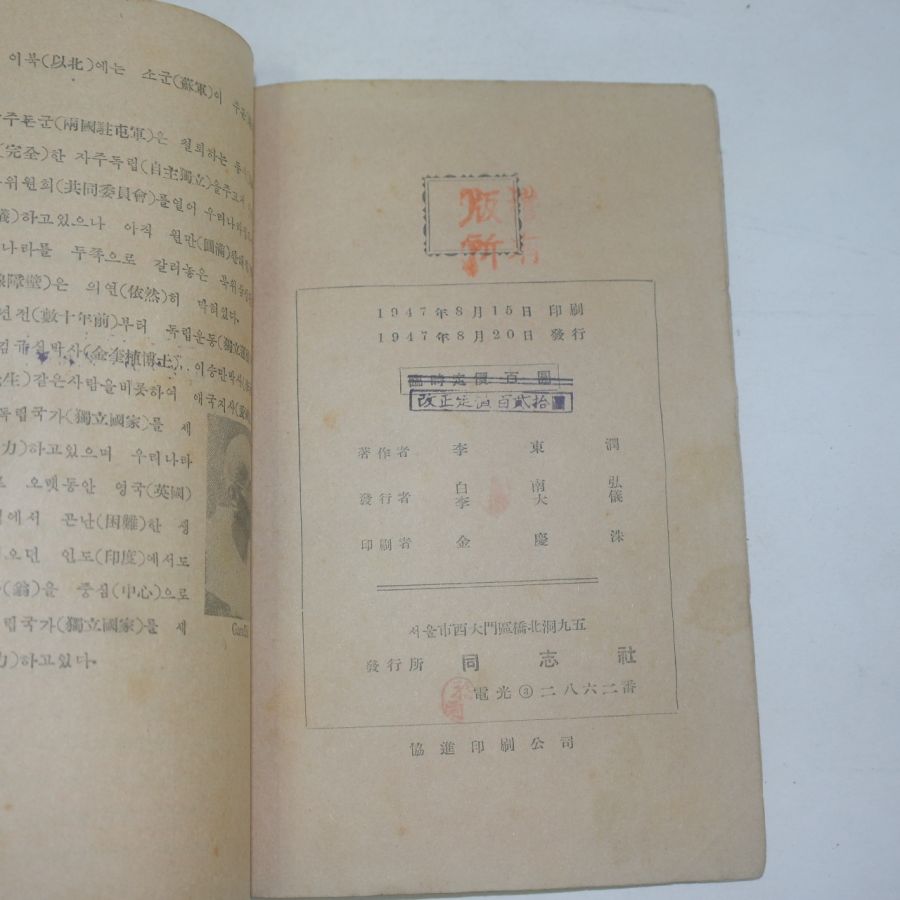 이북(以北)에는 소군(蘇軍)이
주둔군(兩國駐屯軍)은 철퇴하는
(完全)한 자주독립(自主獨立)을주고저
위원회(共同委員會)를열어 우리나라
하고있으나 아직 원만(圓滿)
나라를 두쪽으로 갈러놓은
障壁)은 의연(依然)히 막혀있다.
전(數十年前)부터 독립운동(獨立運
김규식박사(金奎植博士), 이승만박사
生) 같은사람을비롯하여 애국지사
독립국가(獨立國家)를 세
力)하고있으며 우리나라
오랫동안 영국(英國)
에서 곤난(困難)한 생
오던 인도(印度)에서도
(翁)을 중심(中心)으로
립국가(獨立國家)를 세
力)하고있다.
版
新
1947年8月15日 印刷
1947年8月20日 發行
臨時定價百圓
改正定價百貳拾圓
著作者 李東潤
發行者 白南弘
李大儀
印刷者 金慶洙
서울市西大門區橋北洞九五
發行所 同志社
電光③二八六二番
協進印刷公司